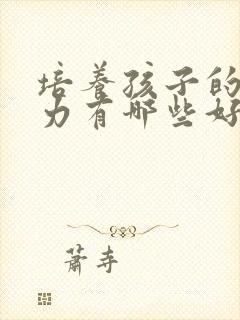 培养孩子的
力有哪些好
萧寺